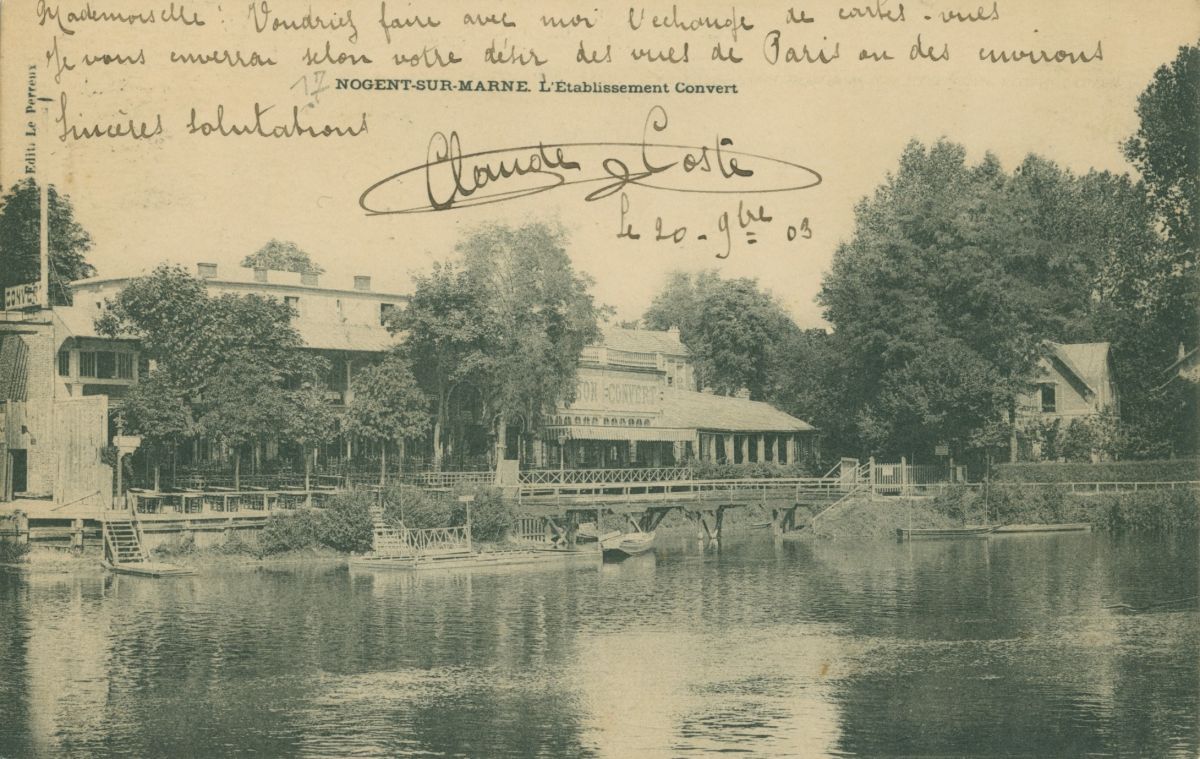 Mademoiselle : Voudriez faire avec moi l'echange de cartes-vues
Je vous enverrai selon votre désir des vues de Paris ou des environs
17 NOGENT-SUR-MARNE. L'Établissement Convert
Sincères salutations
Claude Coste
Le 20-9bre 03
Edit. Le Perreux
CONVERT
SON CONVERT